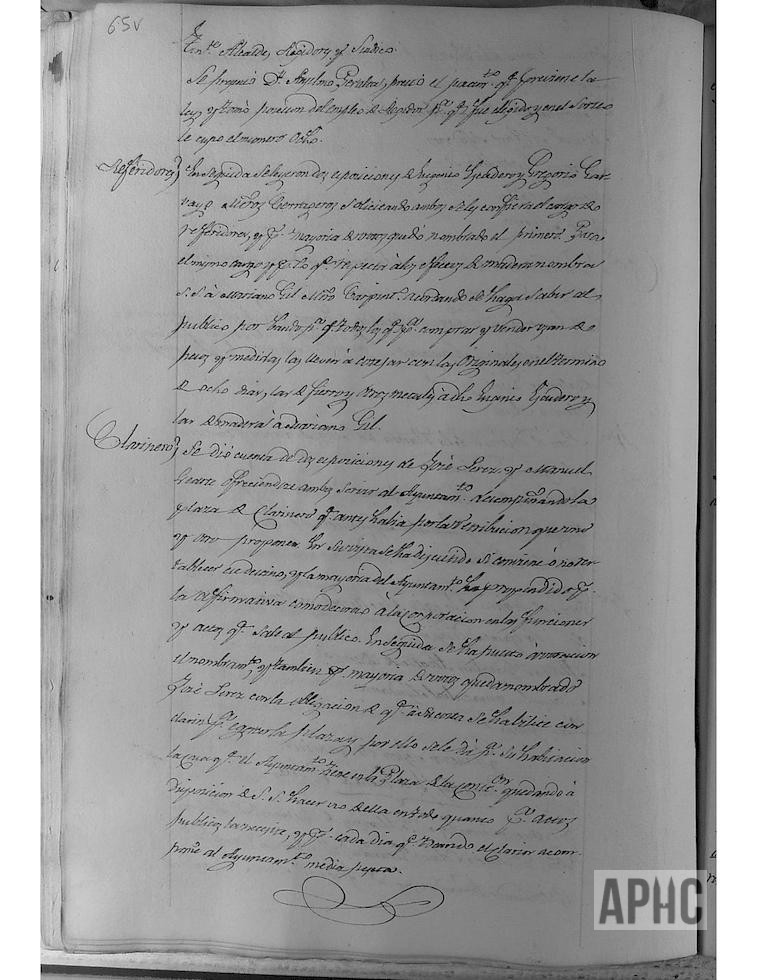 65v
Ten.te Alcalde, Regidores y Sindico.
Se presentó D. Anselmo prestó el juram.to q.e previene la
ley, y tomó posesion del empleo de Regidor p.a q.e fue elegido y en el sorteo
le cupo el numero ocho.
Refêridores En seguida se leyeron dos esposiciones de Eugenio Escudero y Gregorio Gar-
ray Mrõs Cerrageros solicitando ambos se les confiera el cargo de
refferidores, y p.r mayoria de votos quedó nombrado el primero. Para
el mismo cargo y p.r lo q.e respecta à los efectos de madera nombra
S.S. à Mariano Gil Mrõ Carpint.o acordando se haga saber al
publico por bando p.a q.e todos los q.e p.a comprar y vender usan de
pesos y medidas las lleven à cotejar con las originales en el termino
de ocho dias, las de fierro y otros metales à dho Eugenio Escudero y
las de madera à Mariano Gil.
Clarinero Se dió cuenta de dos esposiciones de José Perez y Manuel
ofreciendose ambos servir al Ayuntam.to desempeñando la
plaza de Clarinero q.e antes habia por la retribucion que uno
y otro proponen. En su vista se ha discutido si conviene ó no res-
tablecer este destino, y la mayoria del Ayuntam.to ha propendido p.r
la afirmativa como decoro à la corporacion en las funciones
y actos q.e sale al publico. En seguida se ha puesto à votacion
el nombram.to y tambien p.r mayoria de votos queda nombrado
José Perez con la obligacion de q.e se habilite con
clarin p.a egercer la plaza y por ello se le dá p.a su habitacion
la casa q.e el Ayuntam.to tiene en la Plaza de la Const.on quedando à
disposicion de S.S. hacer uso de ella en todo quanto p.a actos
publicos la necesite, y p.r cada dia q.e tocando el clarin acom-
pañe al Ayuntam.to media peseta.
APHC